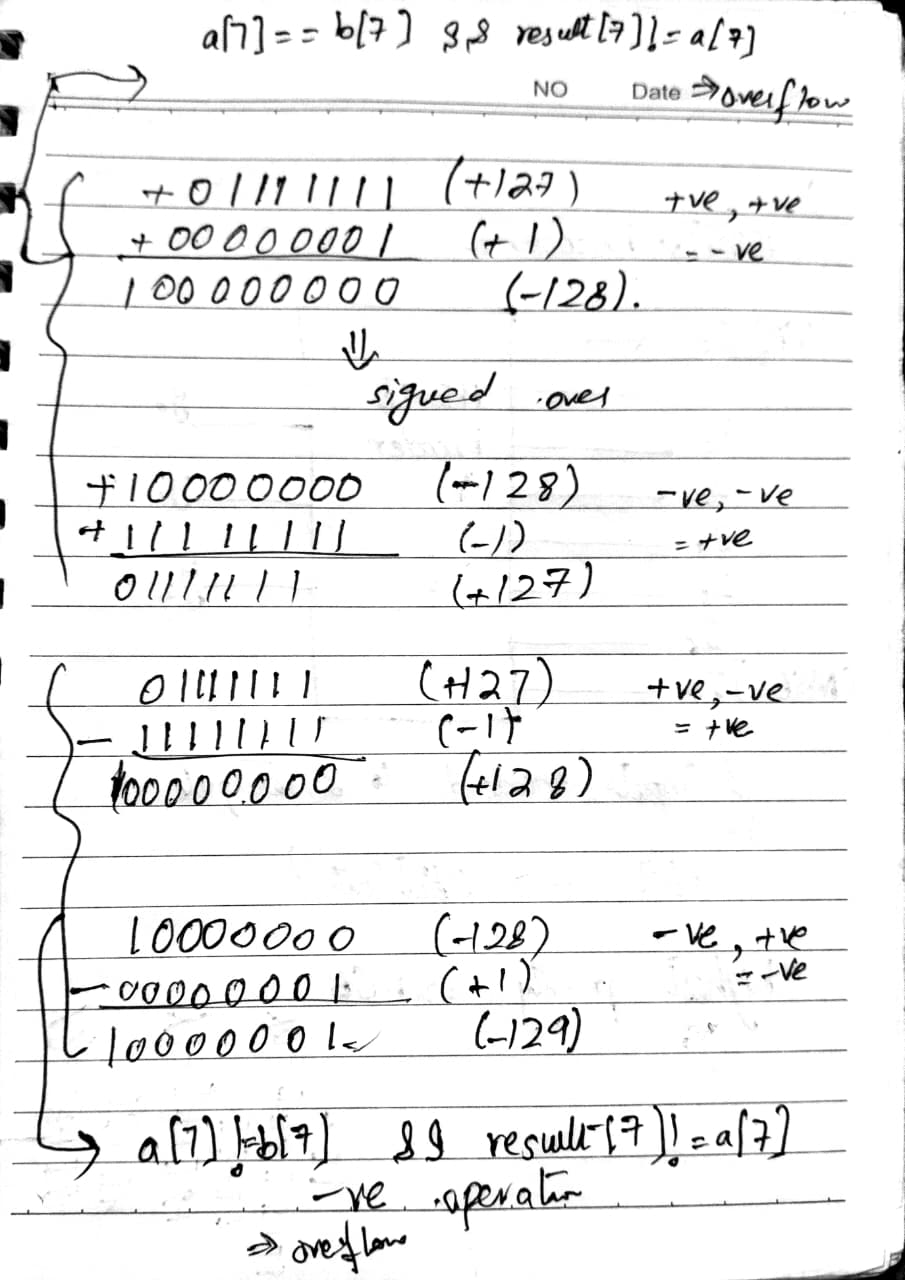 a[7] == b[7] && result[7] != a[7]
NO Date ⇒ overflow
+ 01111111 (+127) +ve, +ve
+ 00000001 (+1) = -ve
100000000 (-128).
⇓
signed over
+10000000 (-128) -ve, -ve
+ 11111111 (-1) = +ve
01111111 (+127)
01111111 (+127) +ve, -ve
- 11111111 (-1) = +ve
100000000 (+128)
10000000 (-128) -ve, +ve
- 00000001 (+1) = -ve
10000001 (-129)
→ a[7] != b[7] && result[7] != a[7]
-ve operation
⇒ overflow